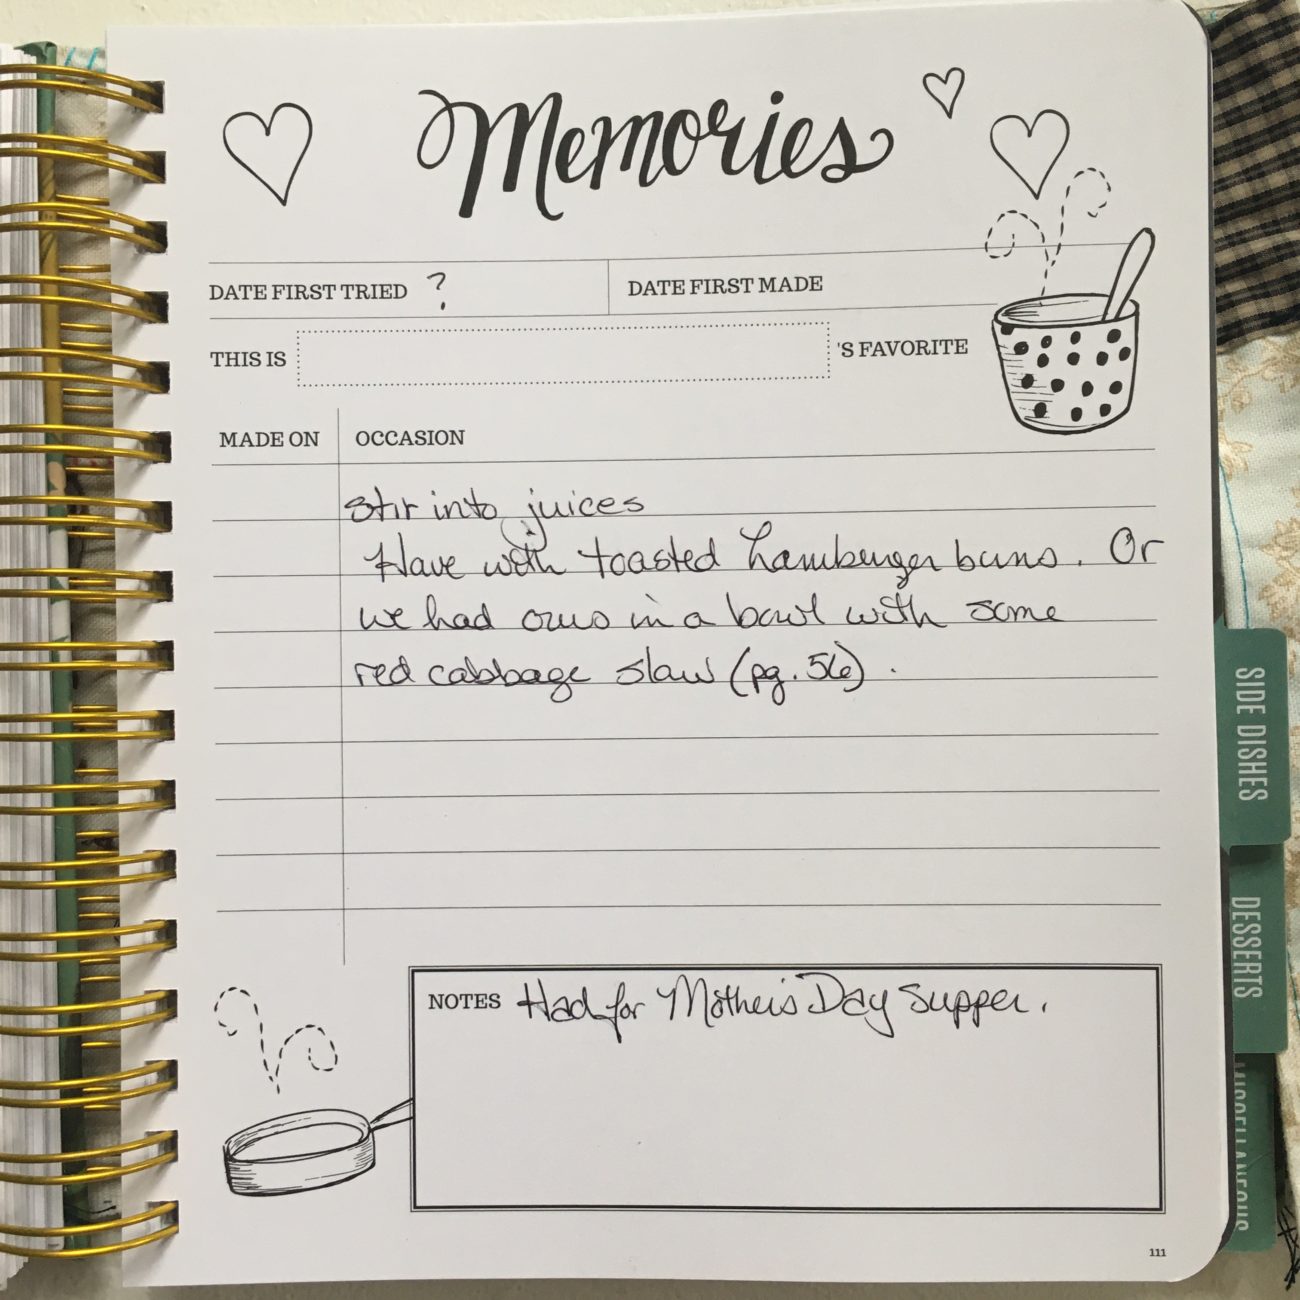 Memories
DATE FIRST TRIED ?
DATE FIRST MADE
THIS IS 'S FAVORITE
MADE ON OCCASION
stir into juices
Have with toasted hamburger buns. Or
we had ours in a bowl with some
red cabbage slaw (pg. 56).
NOTES Had for Mother's Day supper.
111
SIDE DISHES
DESSERTS
MISCELLANEOUS